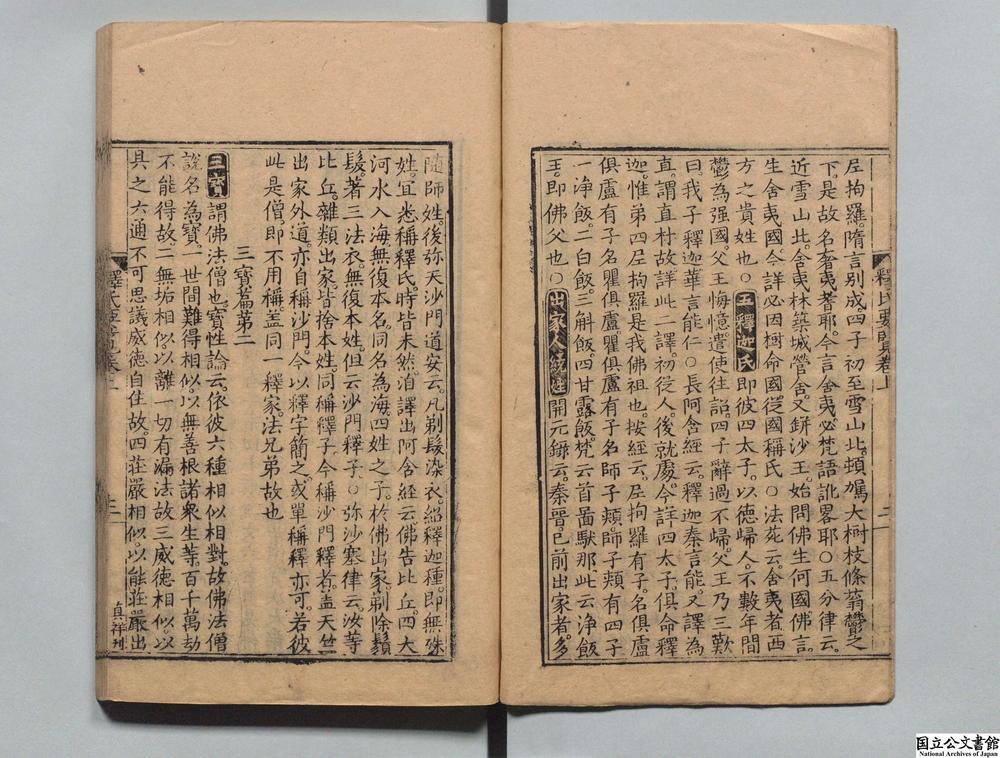 尼拘羅。隋言别成。四子初至雪山北。頓駕大樹枝條蓊鬱之
下。是故名奢夷耆耶。今言舍夷必梵語訛畧耶○五分律云。
近雪山北。舍夷林築城營舍。又缾沙王。始問佛生何國。佛言。
生舍夷國。今詳必因樹命國從國稱氏○法苑云。舍夷者西
方之貴姓也○五釋迦氏即彼四太子。以德歸人。不數年間
鬱為强國。父王悔憶遣使往詔。四子辭過不歸。父王乃三歎
曰。我子釋迦華言能仁○長阿含經云。釋迦秦言能。又譯為
直。謂直林故詳此二譯。初從人。後就處。今詳四太子。俱命釋
迦。惟弟四尼拘羅是我佛祖也。按經云。尼拘羅有子。名俱盧
俱盧有子名瞿俱盧。瞿俱盧有子名師子頰。師子頰有四子
一淨飯。二白飯。三斛飯。四甘露飯。梵云首啚馱那此云淨飯
王。即佛父也○出家人統姓開元錄云。秦晋。已前出家者。多
釋氏要覽卷上
二
隨師姓。後弥天沙門道安云。凡剃髮染衣。紹釋迦種。即無殊
姓。宜悉稱釋氏。時皆未然。洎譯出阿含經云佛告比丘。四大
河水入海。無復本名。同名為海。四姓之子。於佛出家。剃除鬚
髮。著三法衣。無復本姓。但云沙門釋子○弥沙塞律云。汝等
比丘。雜類出家。皆捨本姓。同稱釋子。今稱沙門釋者。盖天竺
出家外道。亦自稱沙門。今以釋字簡之。或單稱釋亦可。若彼
此是僧。即不用稱。盖同一釋家。法兄弟故也
三寳篇第二
三寳謂佛法僧也。寳性論云。依彼六種相似相對。故佛法僧
說名為寳。一世間難得相似。以無善根諸衆生等。百千萬劫
不能得故。二無垢相似。以離一切有漏法故三威德相似。以
具之六通不可思議威德自在故四莊嚴相似。以能莊嚴出
真祥刊
三
国立公文書館
National Archives of Japan